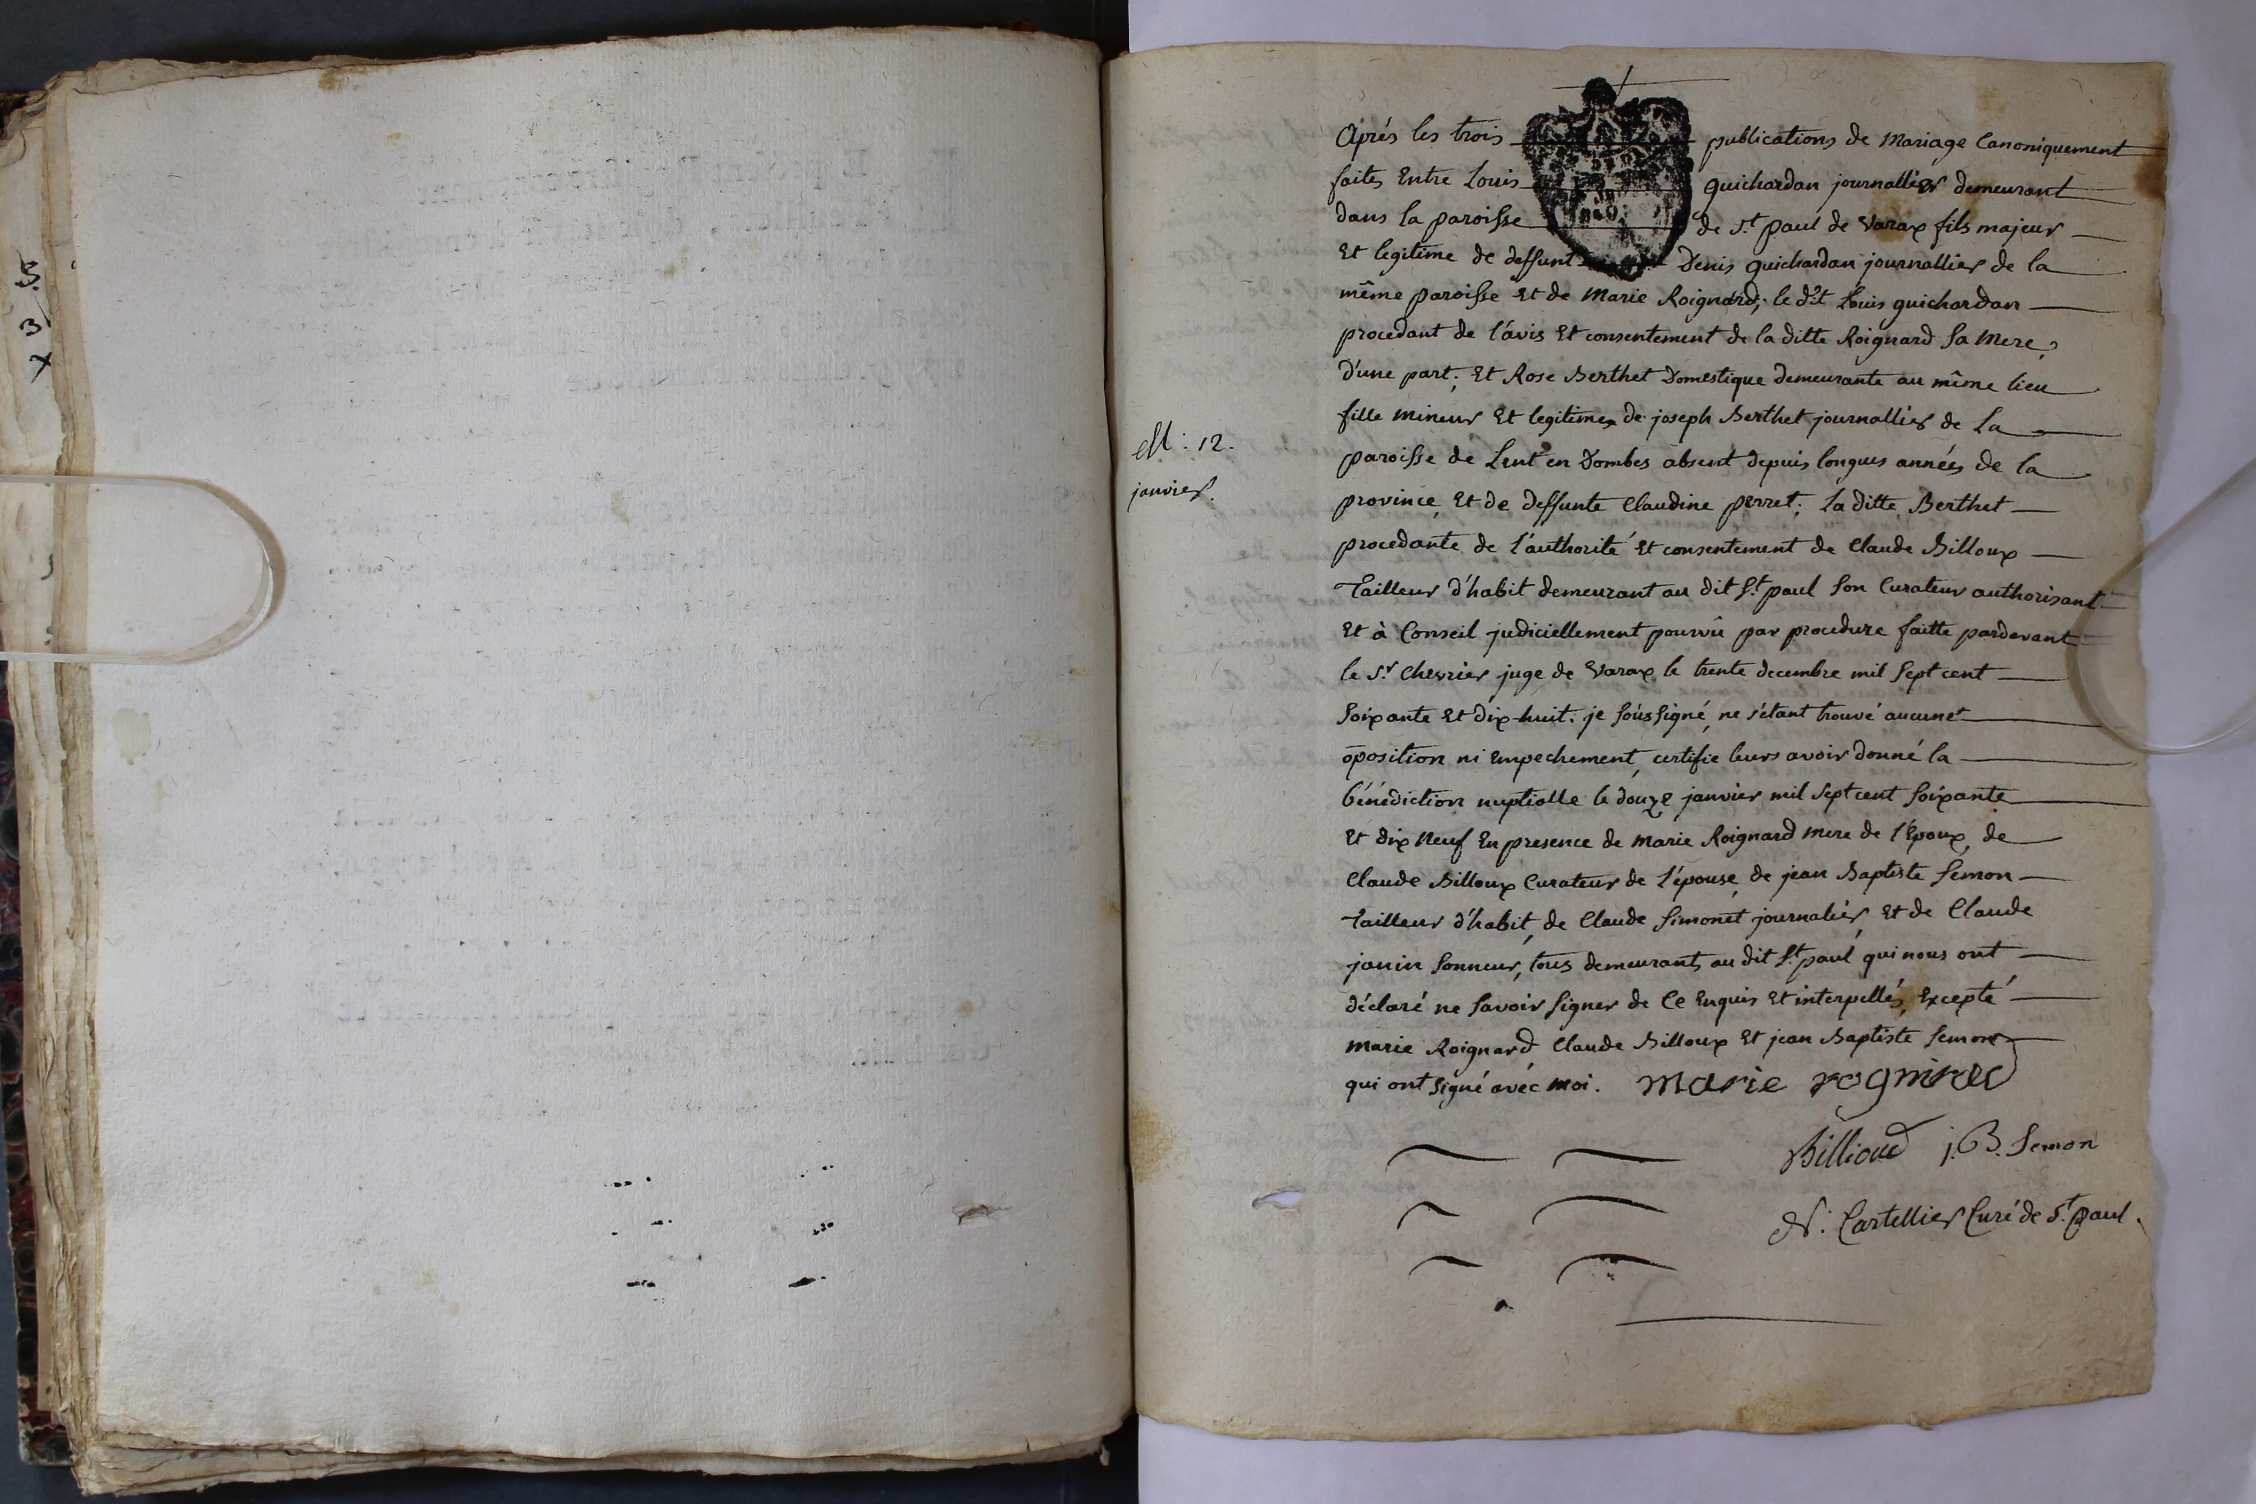 Aprés les trois publications de Mariage Canoniquement
faites Entre Louis guichardan journallier demeurant
dans la paroisse de St. paul de Varax fils majeur
Et legitime de deffunt Denis guichardan journallier de la
même paroisse Et de Marie Roignard; le dit Louis guichardan
procedant de l'avis Et consentement de la ditte Roignard sa Mere,
d'une part; Et Rose Berthet Domestique demeurante au même lieu
fille mineur Et legitime de joseph Berthet journallier de La
paroisse de Lent en Dombes absent depuis longues années de la
province, Et de deffunte Claudine perret; la ditte Berthet
procedante de l'authorité Et consentement de Claude Billoux
Tailleur d'habit demeurant au dit St. paul son Curateur authorisant
Et à Conseil judiciellement pourvû par procedure faitte pardevant
le Sr. Chevrier juge de Varax le trente decembre mil sept cent
soixante Et dix-huit. je soussigné, ne s'étant trouvé aucune
oposition ni Empechement, certifie leurs avoir donné la
bénédiction nuptialle le douze janvier mil sept cent soixante
Et dix Neuf En presence de Marie Roignard mere de l'Epoux, de
Claude Billoux Curateur de l'épouse, de jean Baptiste Semon
Tailleur d'habit, de Claude Simonet journalier, Et de Claude
janin sonneur, tous demeurants au dit St. paul qui nous ont
déclaré ne savoir signer de Ce Enquis Et interpellés, Excepté
Marie Roignard Claude Billoux Et jean Baptiste Semon
qui ont signé avec moi. Marie rognird
Billioud j. B. Semon
N. Cartellier Curé de St. paul.
M: 12.
janvier.